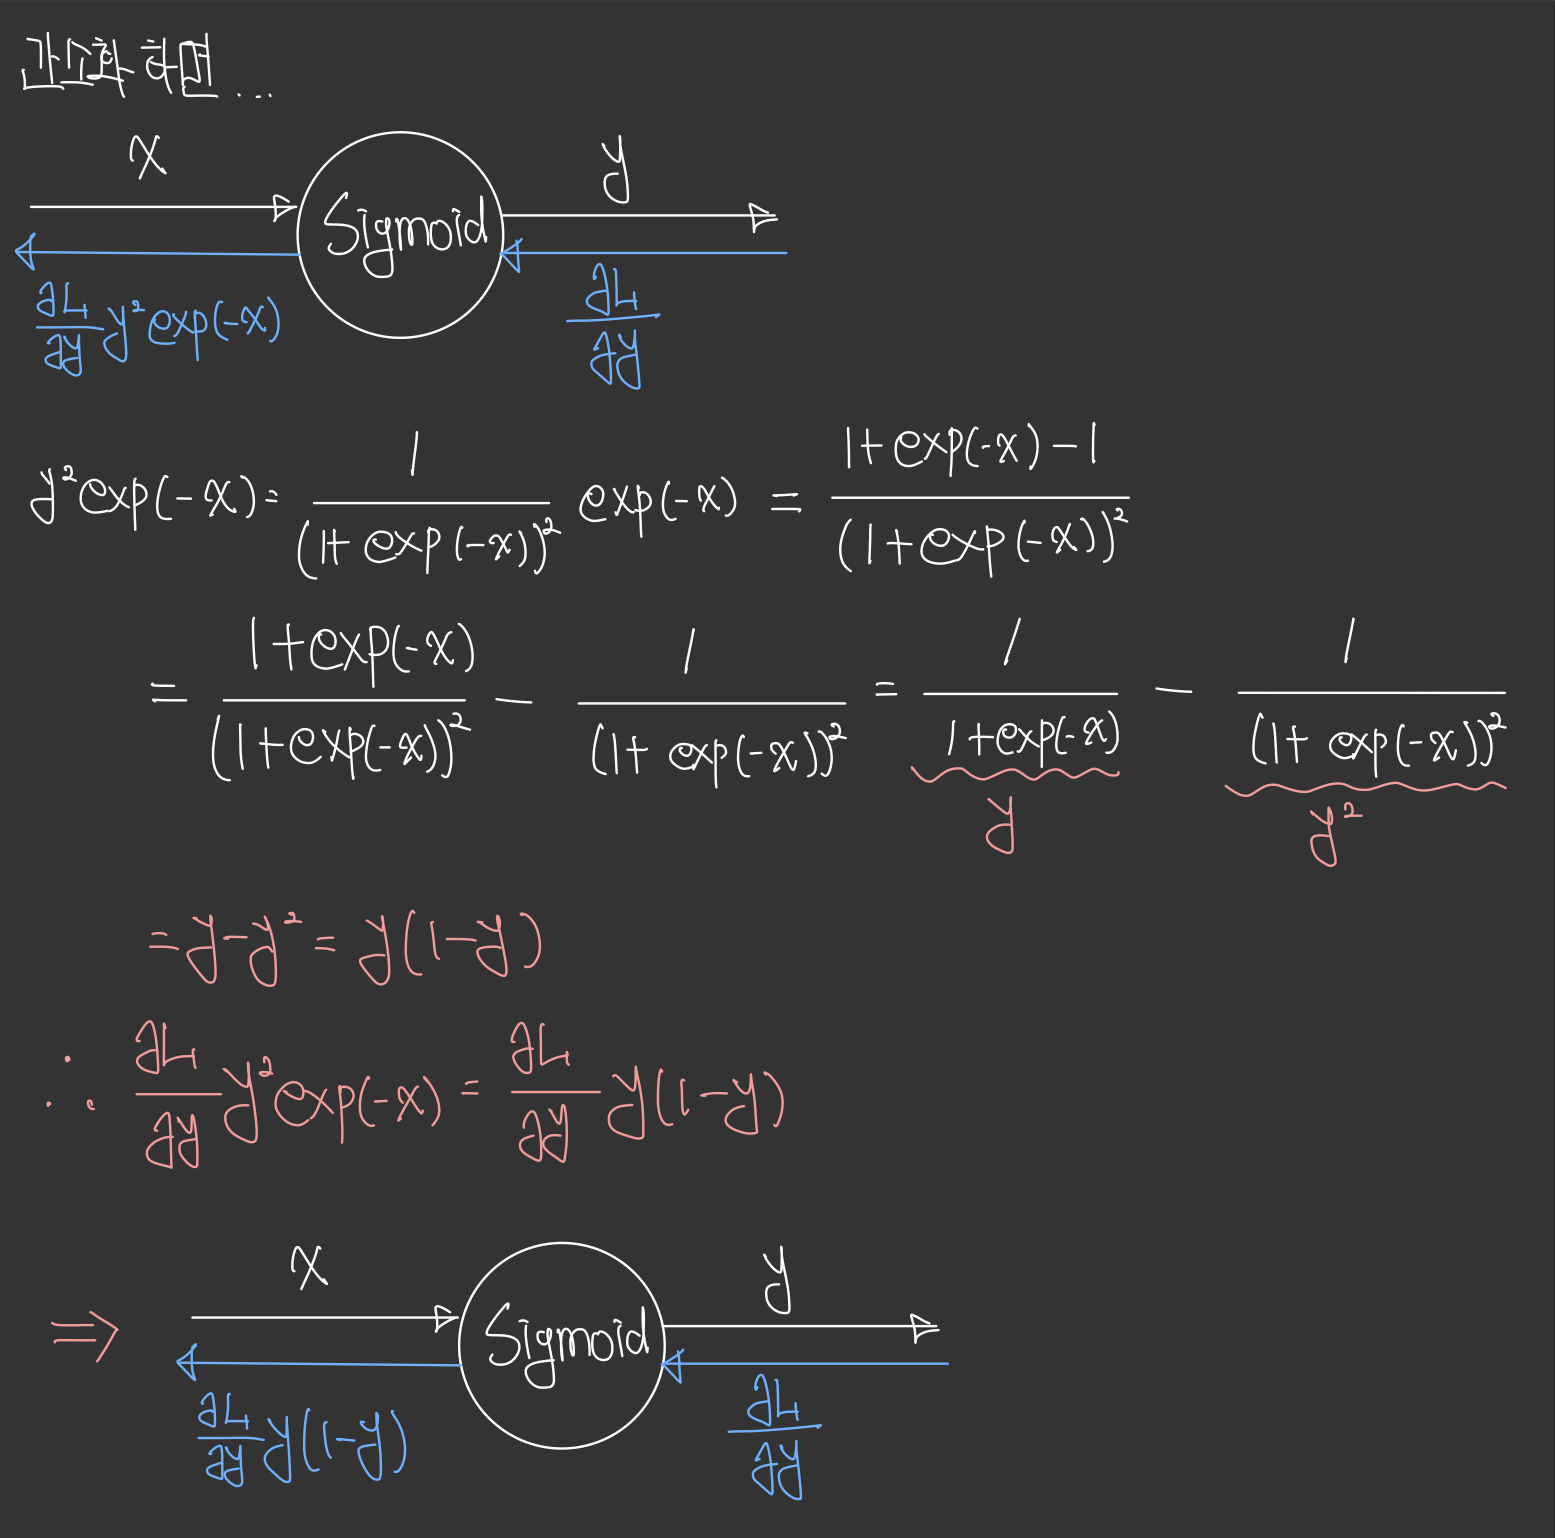 간소화 하면...
x y
Sigmoid
∂L/∂y y² exp(-x) ∂L/∂y
y² exp(-x) = 1/(1+exp(-x))² exp(-x) = (1+exp(-x)-1)/(1+exp(-x))²
= (1+exp(-x))/(1+exp(-x))² - 1/(1+exp(-x))² = 1/(1+exp(-x)) - 1/(1+exp(-x))²
y y²
= y-y² = y(1-y)
∴ ∂L/∂y y² exp(-x) = ∂L/∂y y(1-y)
x y
⇒ Sigmoid
∂L/∂y y(1-y) ∂L/∂y